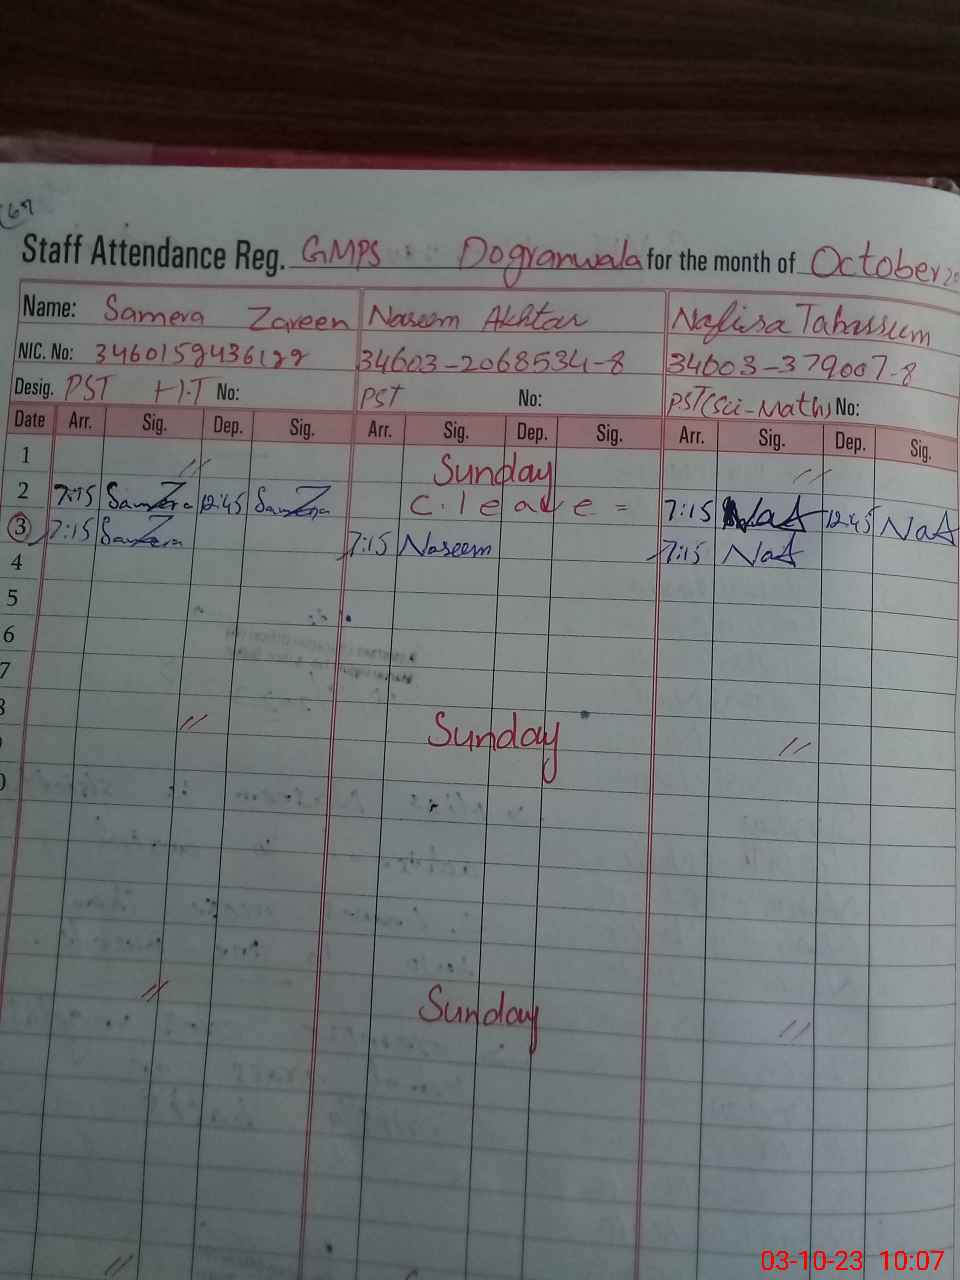 Staff Attendance Reg. GMPS Dogranwala for the month of October 20
Name: Samera Zareen Naseem Akhtar Nafisa Tabassum
NIC. No: 3460159436122 34603-2068534-8 34603-379007-8
Desig. PST H.T No: PST No: PST(Sci-Math) No:
Date Arr. Sig. Dep. Sig. Arr. Sig. Dep. Sig. Arr. Sig. Dep. Sig.
1 // Sunday //
2 7:15 Samera 12:45 Samera C. leave = 7:15 NaA 12:45 NaA
3 7:15 Samera 7:15 Naseem 7:15 NaA
4
5
6
7
8 // Sunday //
9
0
// Sunday //
//
03-10-23 10:07